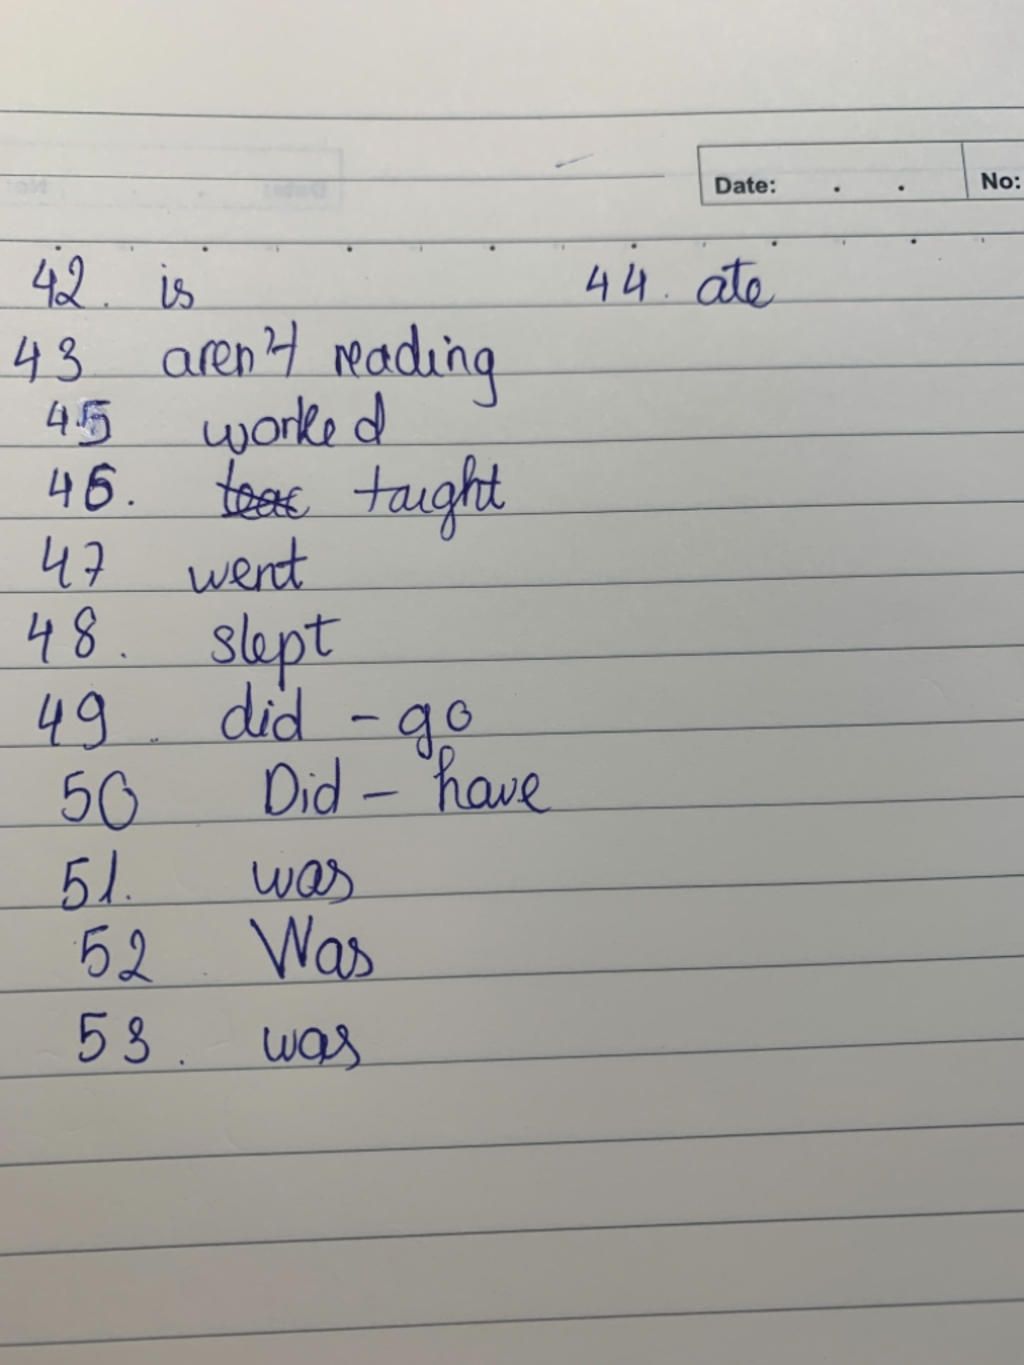 Date: . . No:
42. is 44. ate
43 aren't reading
45 worked
46. taught
47 went
48. slept
49. did - go
50 Did - have
51. was
52. Was
53. was